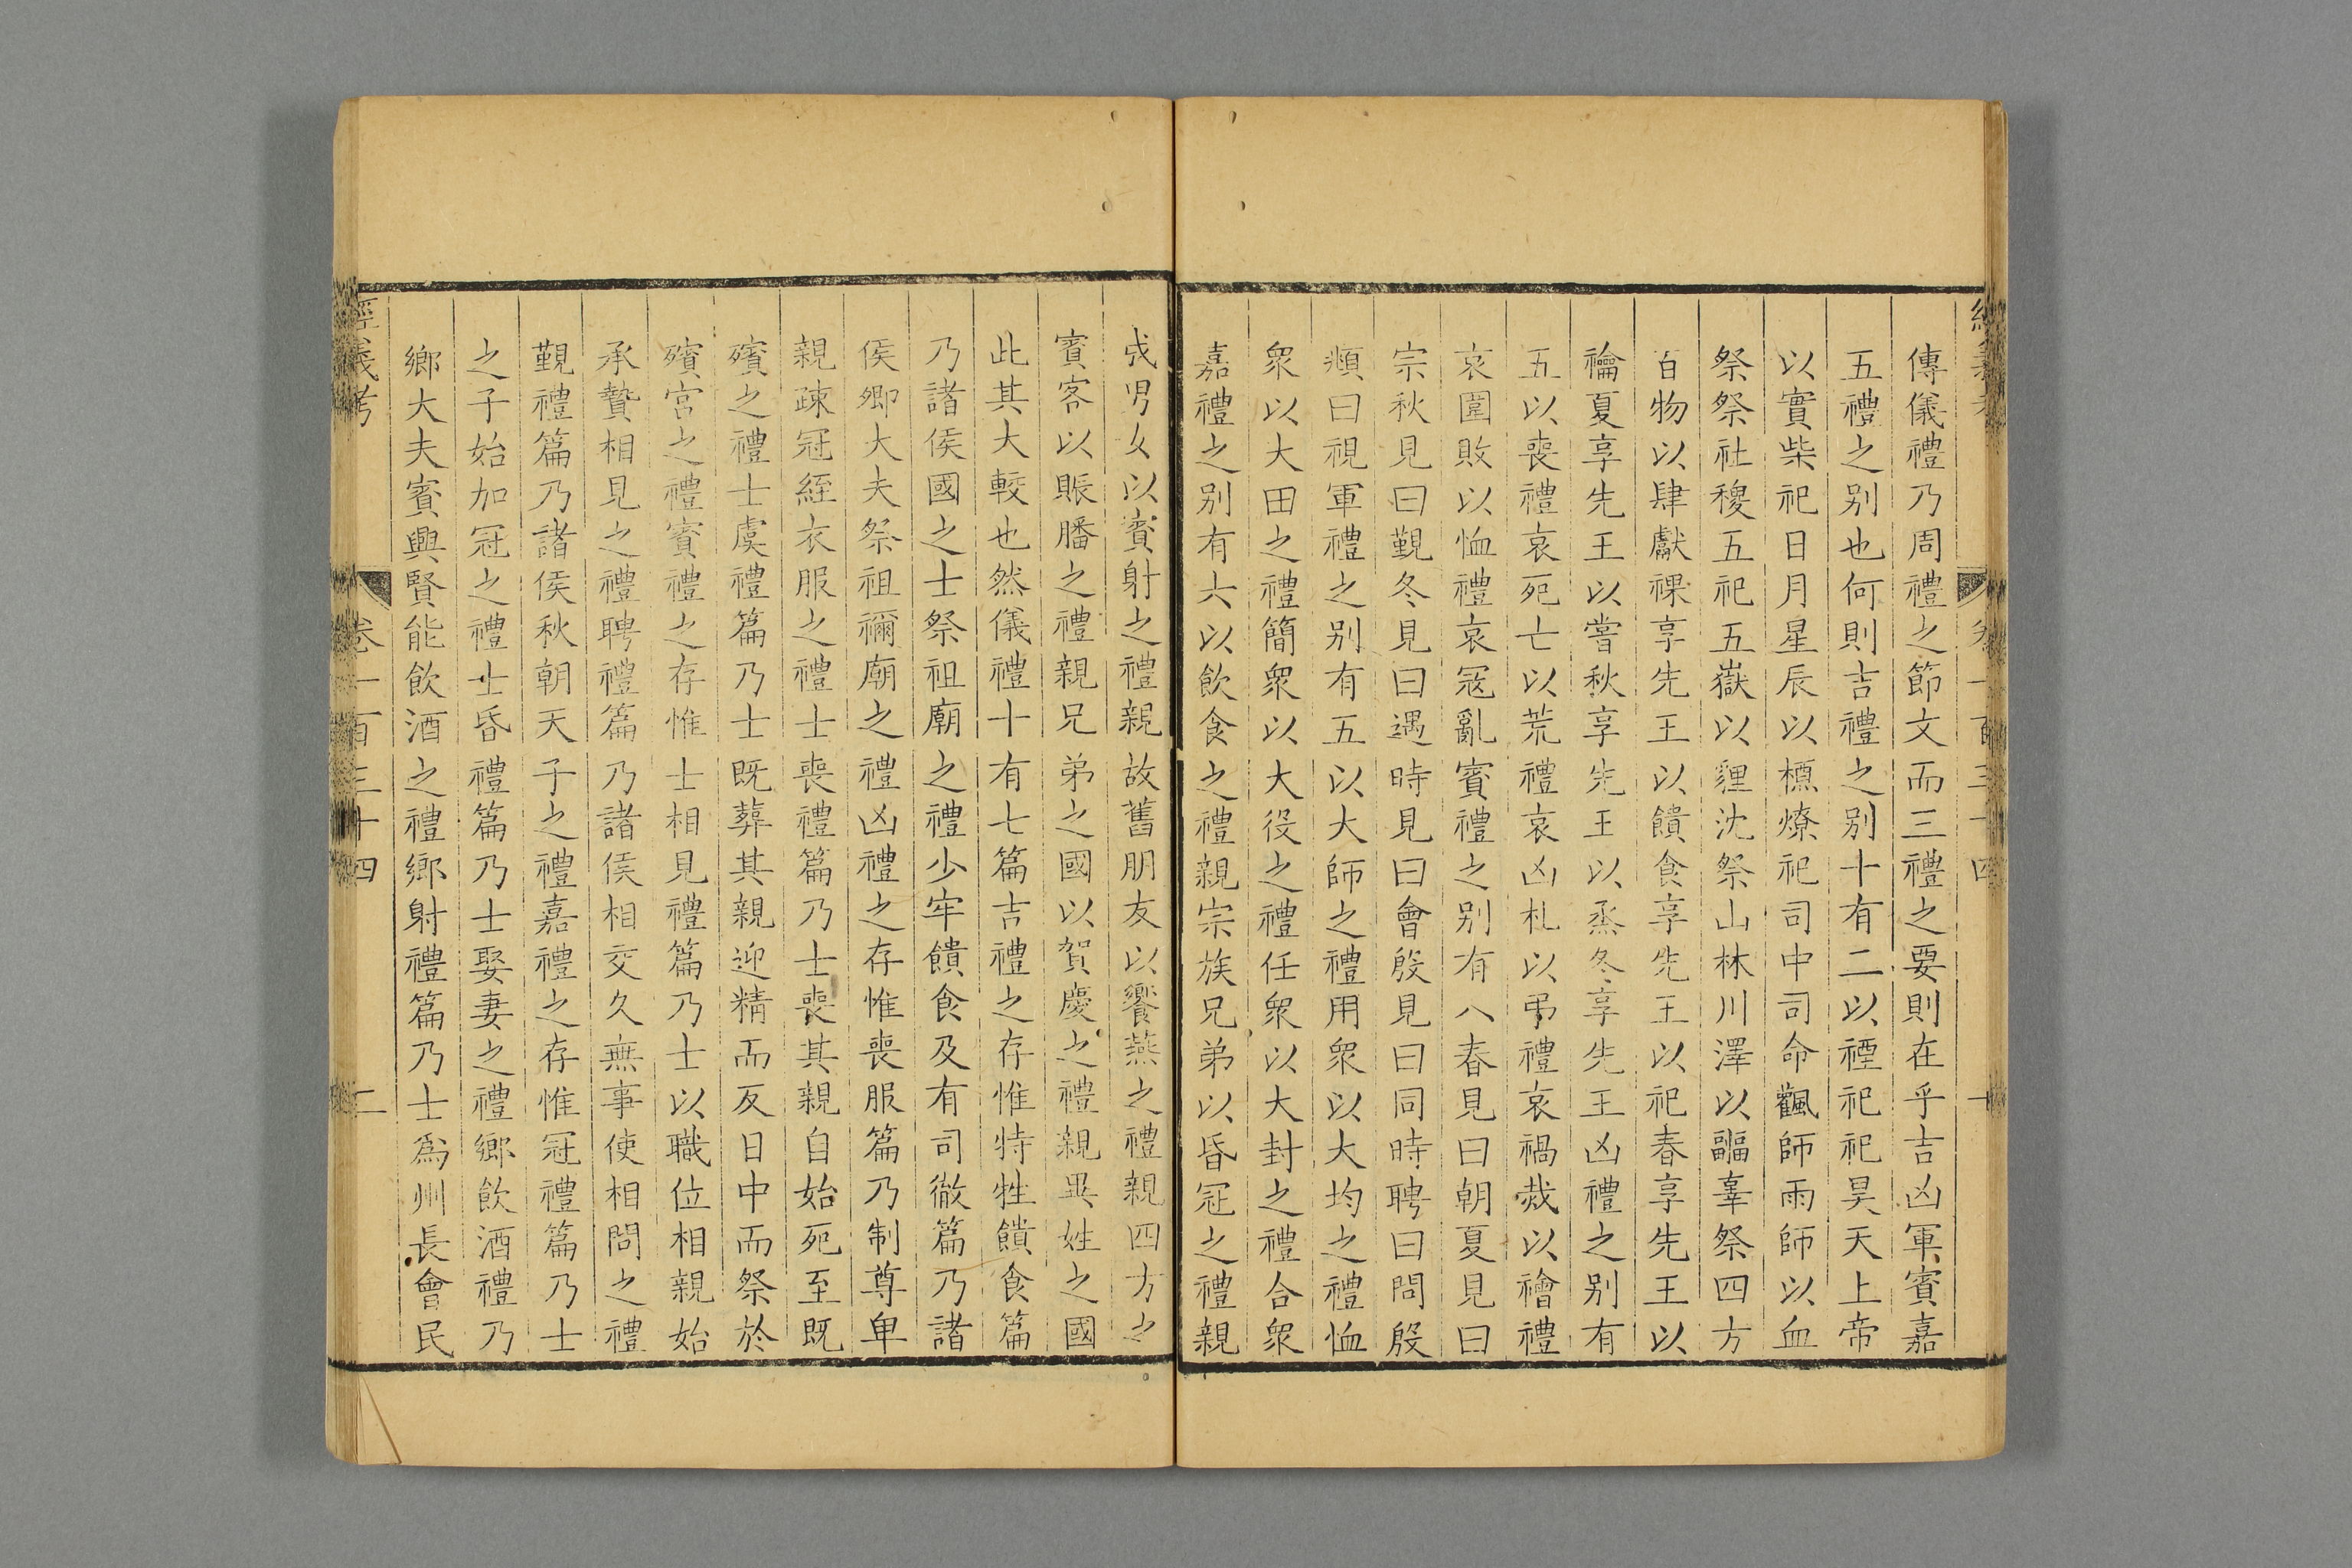 傳儀禮乃周禮之節文而三禮之要則在乎吉凶軍賓嘉
五禮之别也何則吉禮之别十有二以禋祀祀昊天上帝
以實柴祀日月星辰以槱燎祀司中司命飌師雨師以血
祭祭社稷五祀五嶽以貍沈祭山林川澤以疈辜祭四方
百物以肆獻祼享先王以饋食享先王以祀春享先王以
禴夏享先王以嘗秋享先王以烝冬享先王凶禮之别有
五以喪禮哀死亡以荒禮哀凶札以弔禮哀禍烖以禬禮
哀圍敗以恤禮哀寇亂賓禮之别有八春見曰朝夏見曰
宗秋見曰覲冬見曰遇時見曰會殷見曰同時聘曰問殷
頫曰視軍禮之别有五以大師之禮用衆以大均之禮恤
衆以大田之禮簡衆以大役之禮任衆以大封之禮合衆
嘉禮之别有六以飲食之禮親宗族兄弟以昏冠之禮親
成男女以賓射之禮親故舊朋友以饗燕之禮親四方之
賓客以賑膰之禮親兄弟之國以賀慶之禮親異姓之國
此其大較也然儀禮十有七篇吉禮之存惟特牲饋食篇
乃諸侯國之士祭祖廟之禮少牢饋食及有司徹篇乃諸
侯卿大夫祭祖禰廟之禮凶禮之存惟喪服篇乃制尊卑
親疎冠絰衣服之禮士喪禮篇乃士喪其親自始死至既
殯之禮士虞禮篇乃士既葬其親迎精而反日中而祭於
殯宮之禮賓禮之存惟士相見禮篇乃士以職位相親始
承贄相見之禮聘禮篇乃諸侯相交久無事使相問之禮
覲禮篇乃諸侯秋朝天子之禮嘉禮之存惟冠禮篇乃士
之子始加冠之禮士昏禮篇乃士娶妻之禮鄉飲酒禮乃
鄉大夫賓興賢能飲酒之禮鄉射禮篇乃士爲州長會民
經義考 卷一百三十四 二